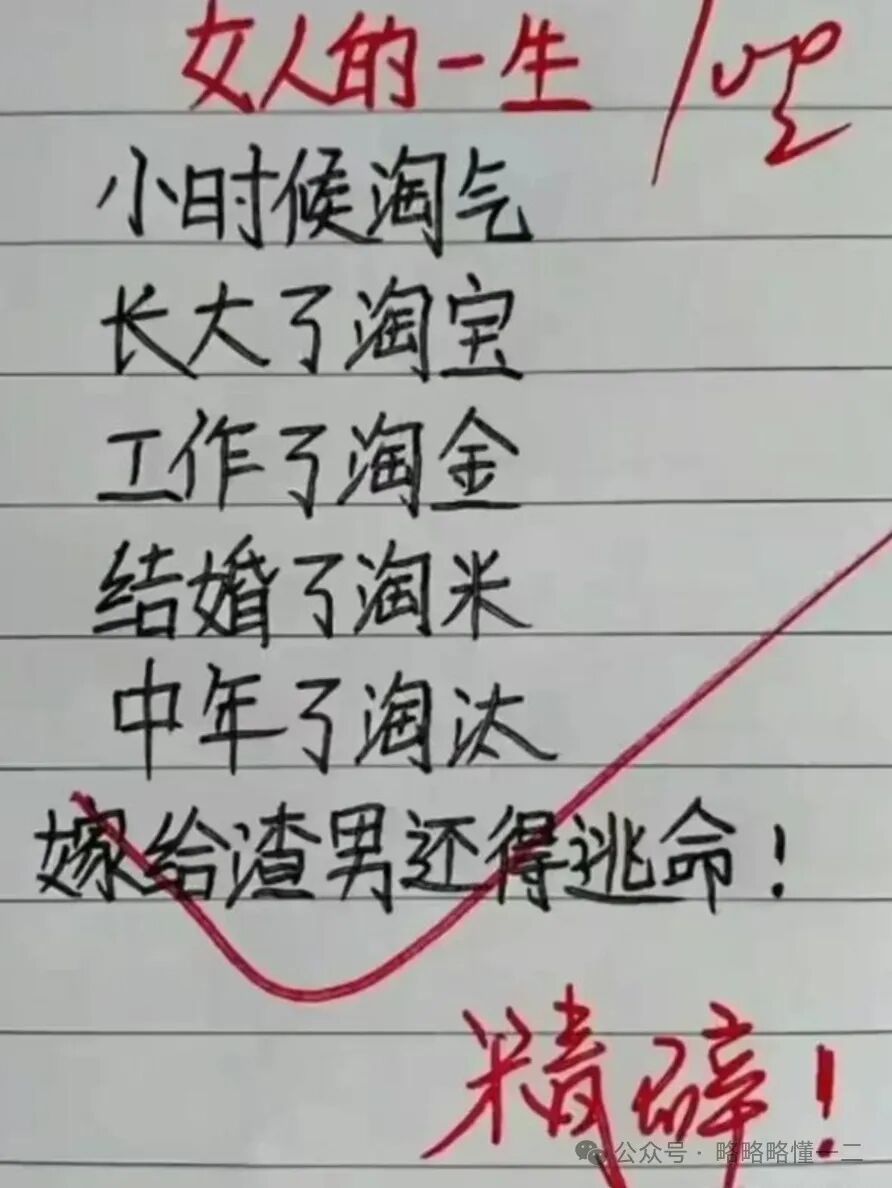 女人的一生
小时候淘气
长大了淘宝
工作了淘金
结婚了淘米
中年了淘汰
嫁给渣男还得逃命！
精辟！
公众号 · 略略略懂一二